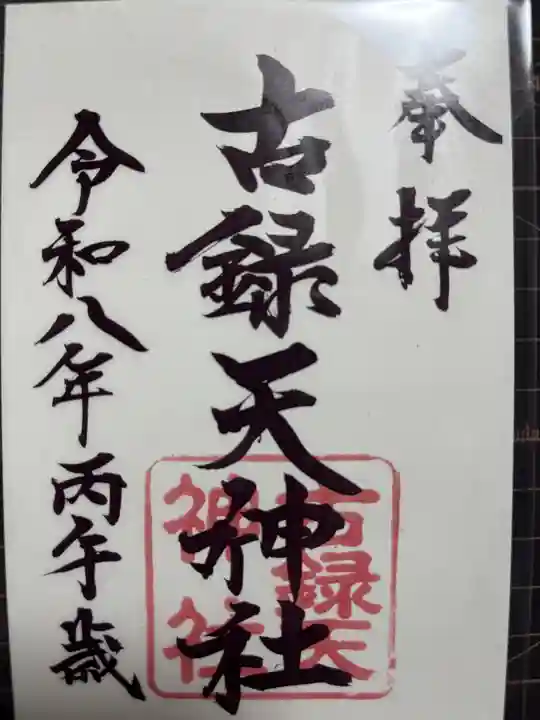 奉拝
古録天神社
古録天
神社
令和八年丙午歳